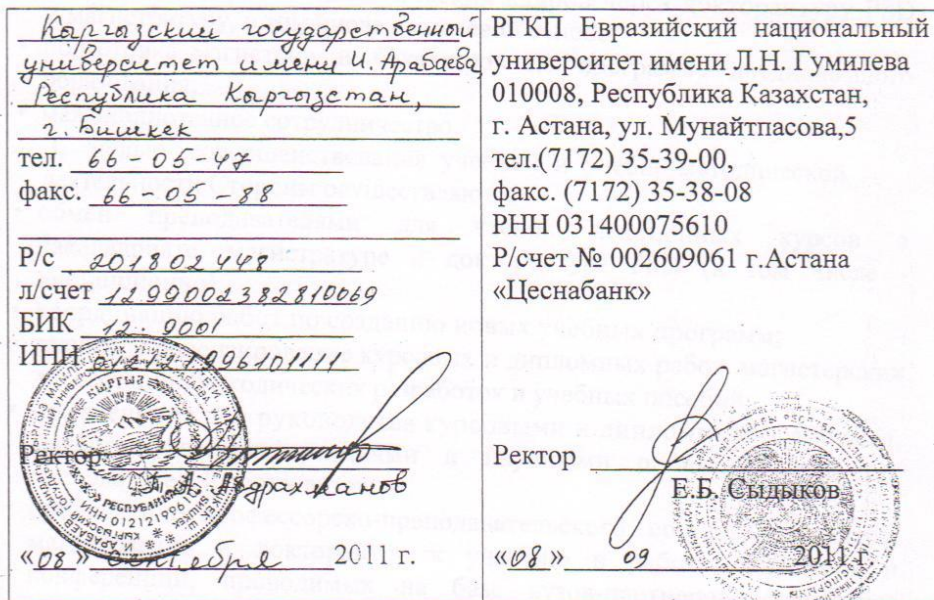 Кыргызский государственный
университет имени И. Арабаева,
Республика Кыргызстан,
г. Бишкек
тел. 66-05-47
факс. 66-05-88
Р/с 201802448
л/счет 1299002382810069
БИК 12-9001
ИНН 01212199610111
Ректор
Абдрахманов
«08» октября 2011 г.
РГКП Евразийский национальный
университет имени Л.Н. Гумилева
010008, Республика Казахстан,
г. Астана, ул. Мунайтпасова,5
тел.(7172) 35-39-00,
факс. (7172) 35-38-08
РНН 031400075610
Р/счет № 002609061 г.Астана
«Цеснабанк»
Ректор
Е.Б. Сыдыков
«08» 09 2011 г.